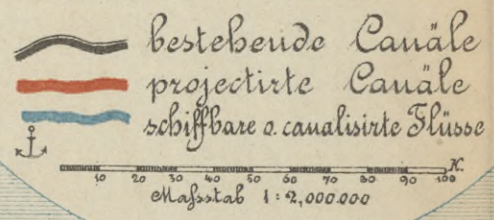 bestehende Canäle
projectirte Canäle
schiffbare o. canalisirte Flüsse
10 20 30 40 50 60 70 80 90 100 K.
Maßstab 1:2,000.000